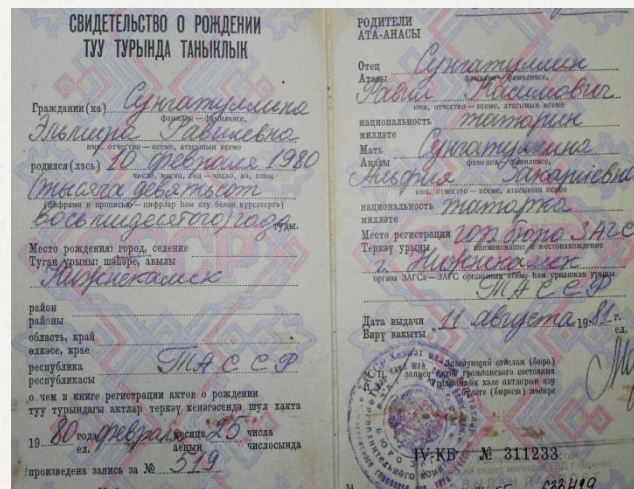 СВИДЕТЕЛЬСТВО О РОЖДЕНИИ
ТУУ ТУРЫНДА ТАНЫКЛЫК
Гражданин(ка) Сунгатуллина
фамилия — фамилиясе,
Эльмира Равилевна
имя, отчество — исеме, атасының исеме
родился(лась) 10 февраля 1980
число, месяц, год — число, ай, елы
(тысяча девятьсот
(цифрами и прописью — цифрлар һәм язу белән күрсәтергә)
восьмидесятого) года
туды.
Место рождения: город, селение
Туган урыны: шәһәре, авылы
Нижнекамск
район
районы
область, край
өлкәсе, крае
республика ТАССР
республикасы
о чем в книге регистрации актов о рождении
туу турындагы актлар теркәү кенәгәсендә шул хакта
19 80 года февраля месяца 25 числа
ел. аеның числосында
произведена запись за № 519
РОДИТЕЛИ
АТА-АНАСЫ
Отец Сунгатуллин
Атасы фамилия — фамилиясе,
Равил Расимович
имя, отчество — исеме, атасының исеме
национальность татарин
милләте
Мать Сунгатуллина
Анасы фамилия — фамилиясе,
Альфия Закариевна
имя, отчество — исеме, атасының исеме
национальность татарка
милләте
Место регистрации гор бюро ЗАГС
Теркәү урыны наименование и местонахождение
г. Нижнекамск
органа ЗАГСа — ЗАГС органының исеме һәм урнашкан урыны
ТАССР
Дата выдачи „ 11 августа 1981 г.
Бирү вакыты ел.
Заведующий отделом (бюро)
записи актов гражданского состояния
Гражданлык хәле актларын язу
бүлеге (бюросы) мөдире
IV-КБ № 311233